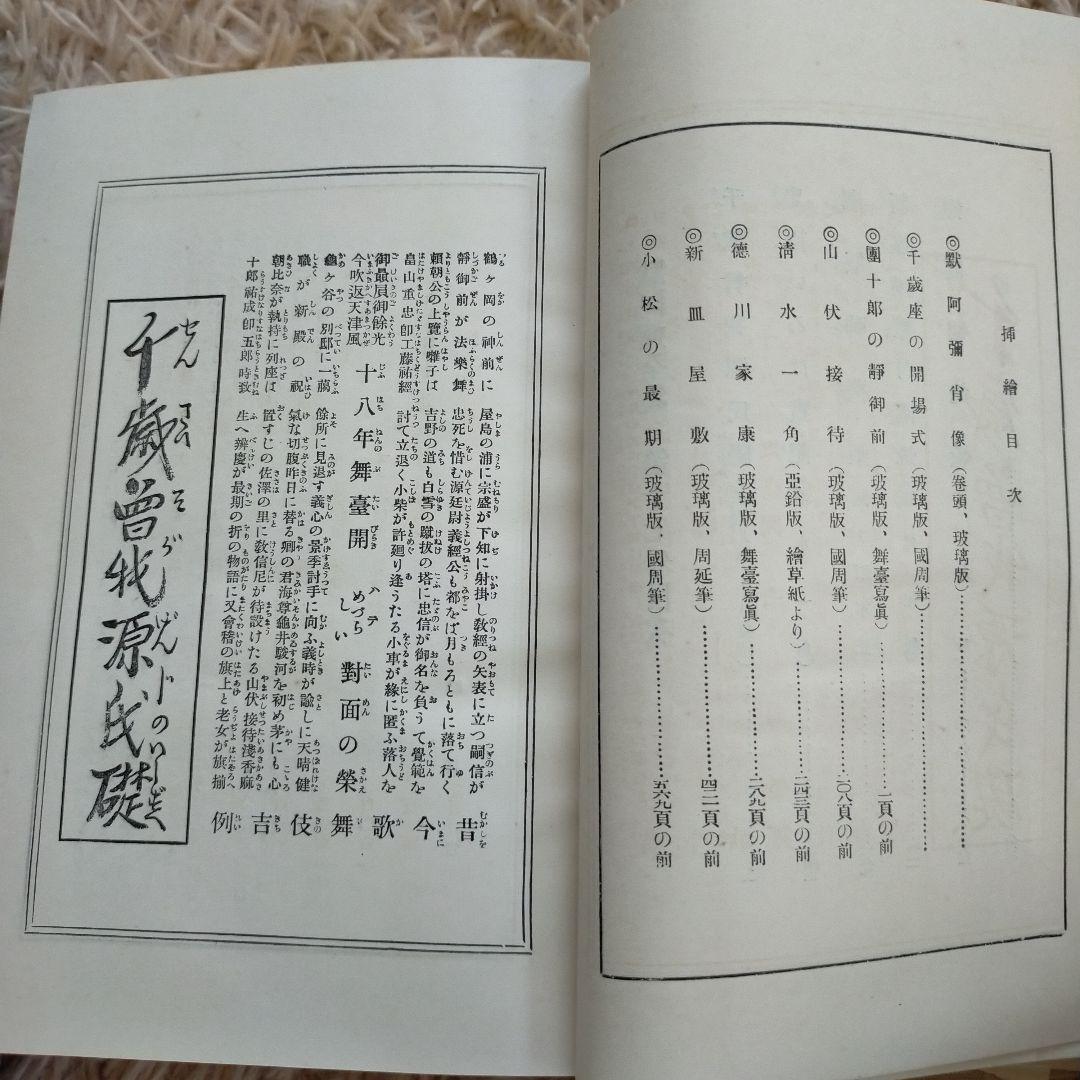 挿繪目次
◎默阿彌肖像（卷頭、玻璃版）
◎千歲座の開場式（玻璃版、國周筆）
◎團十郎の靜御前（玻璃版、舞臺寫眞）一頁の前
◎山伏接待（玻璃版、國周筆）一〇八頁の前
◎淸水一角（亞鉛版、繪草紙より）二四三頁の前
◎德川家康（玻璃版、舞臺寫眞）二八九頁の前
◎新皿屋敷（玻璃版、周延筆）四二一頁の前
◎小松の最期（玻璃版、國周筆）五六九頁の前
鶴ヶ岡の神前に
靜御前が法樂舞
賴朝公の上覽に囃子は
畠山重忠卽工藤祐經
御最屓御餘光
今吹返天津風
十八年舞臺開
龜ヶ谷の別邸に一﨟
職が新殿の祝
朝比奈が執持に列座は
十郎祐成卽五郎時致
屋島の浦に宗盛が下知に射掛し敎經の矢表に立つ嗣信が
忠死を惜む源廷尉義經公も都をば月もろともに落て行く
吉野の道も白雪の蹴拔の塔に忠信が御名を負うて覺範を
討て立退く小柴が許廻り逢うたる小車が緣に匿ふ落人を
ハデめづらしい對面の榮
餘所に見退す義心の景季討手に向ふ義時が諭しに天晴健
氣な切腹昨日に替る卿の君海尊龜井駿河を初め茅にも心
置すじの佐澤の里に敎信尼が待設けたる山伏接待淺香麻
生へ辨慶が最期の折の物語に又會稽の旗上と老女が旗揃
昔今歌舞伎吉例
千歲曾我源氏礎